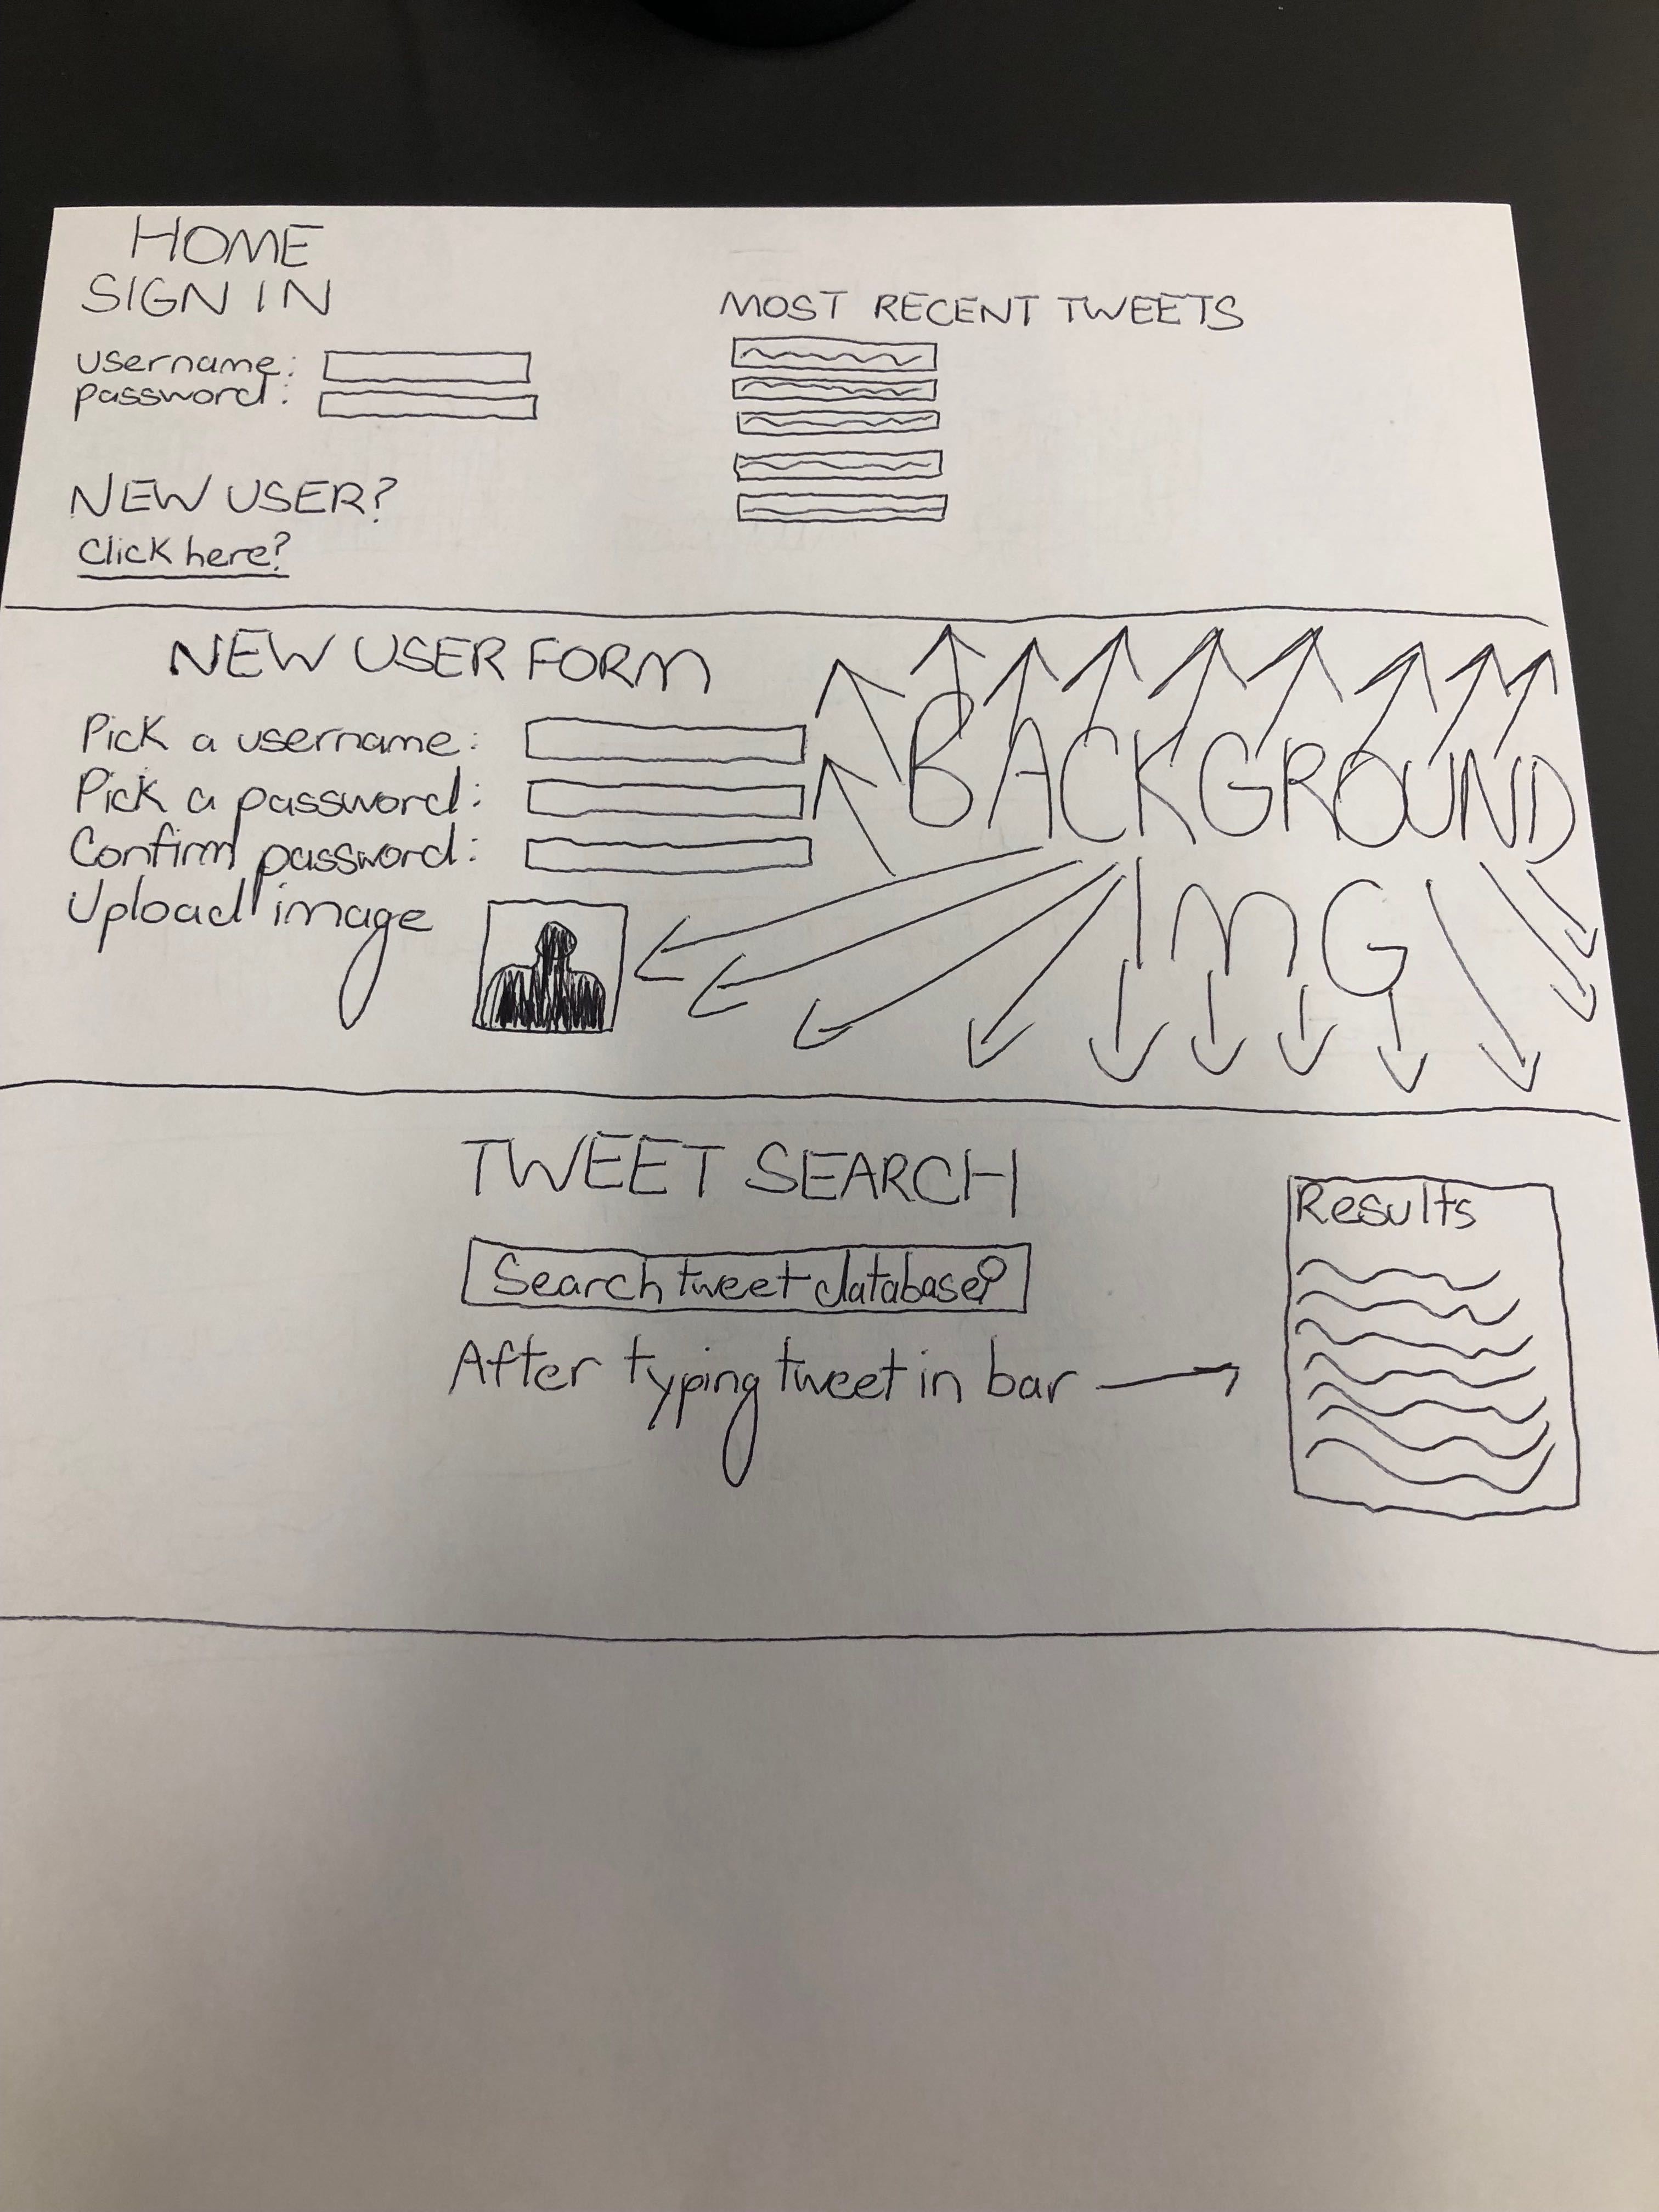 HOME
SIGN IN
username:
password:
NEW USER?
Click here?
MOST RECENT TWEETS
NEW USER FORM
Pick a username:
Pick a password:
Confirm password:
Upload image
BACKGROUND
IMG
TWEET SEARCH
Search tweet database?
After typing tweet in bar
Results